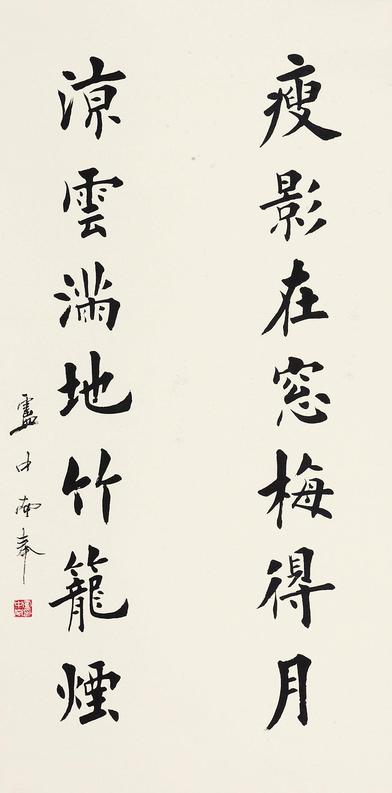 瘦影在窓梅得月
涼雲滿地竹籠煙
盧中南奉